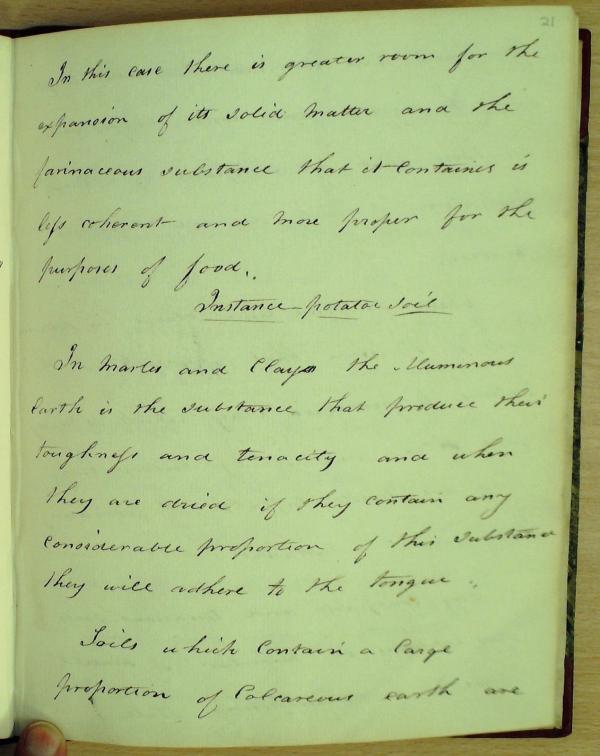 21
In this case there is greater room for the
expansion of its solid matter and the
farinaceous substance that it containes is
less coherent and more proper for the
purposes of food.
Instance potatoe soil
In Marles and Clays the Aluminous
earth is the substance that produce their
toughness and tenacity and when
they are dried if they contain any
considerable proportion of this substance
they will adhere to the tongue.
Soils which Contain a large
proportion of Calcareous earth are